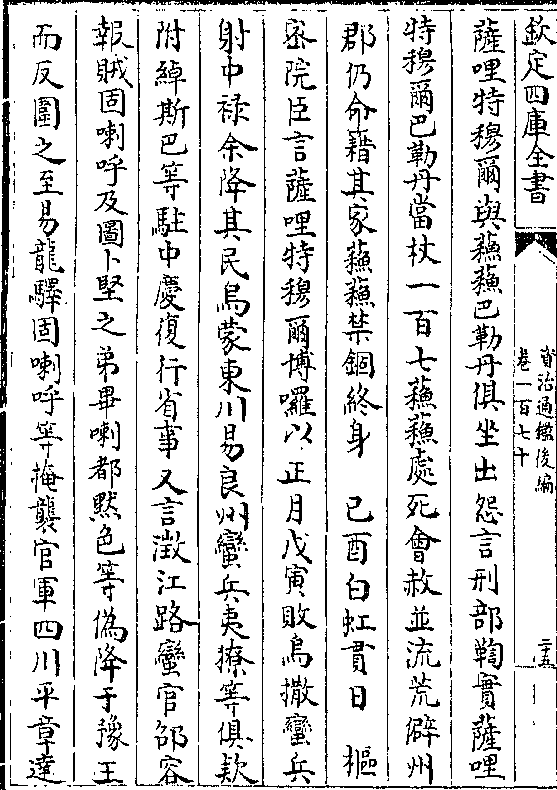 欽定四庫全書
資治通鑑後編
卷一百七十
二十五
薩哩特穆爾與蘓蘓巴勒丹俱坐出怨言刑部鞫實薩哩
特穆爾巴勒丹當杖一百七蘓蘓處死會赦並流荒僻州
郡仍命籍其家蘓蘓禁錮終身　己酉白虹貫日　樞
宻院臣言薩哩特穆爾博囉以正月戊寅敗烏撒蠻兵
射中禄余降其民烏蒙東川易良州蠻兵夷獠等俱欵
附綽斯巴等駐中慶復行省事又言澂江路蠻官郤容
報賊固喇呼及圖卜堅之弟畢喇都黙色等僞降于豫王
而反圍之至易龍驛固喇呼等掩襲官軍四川平章達